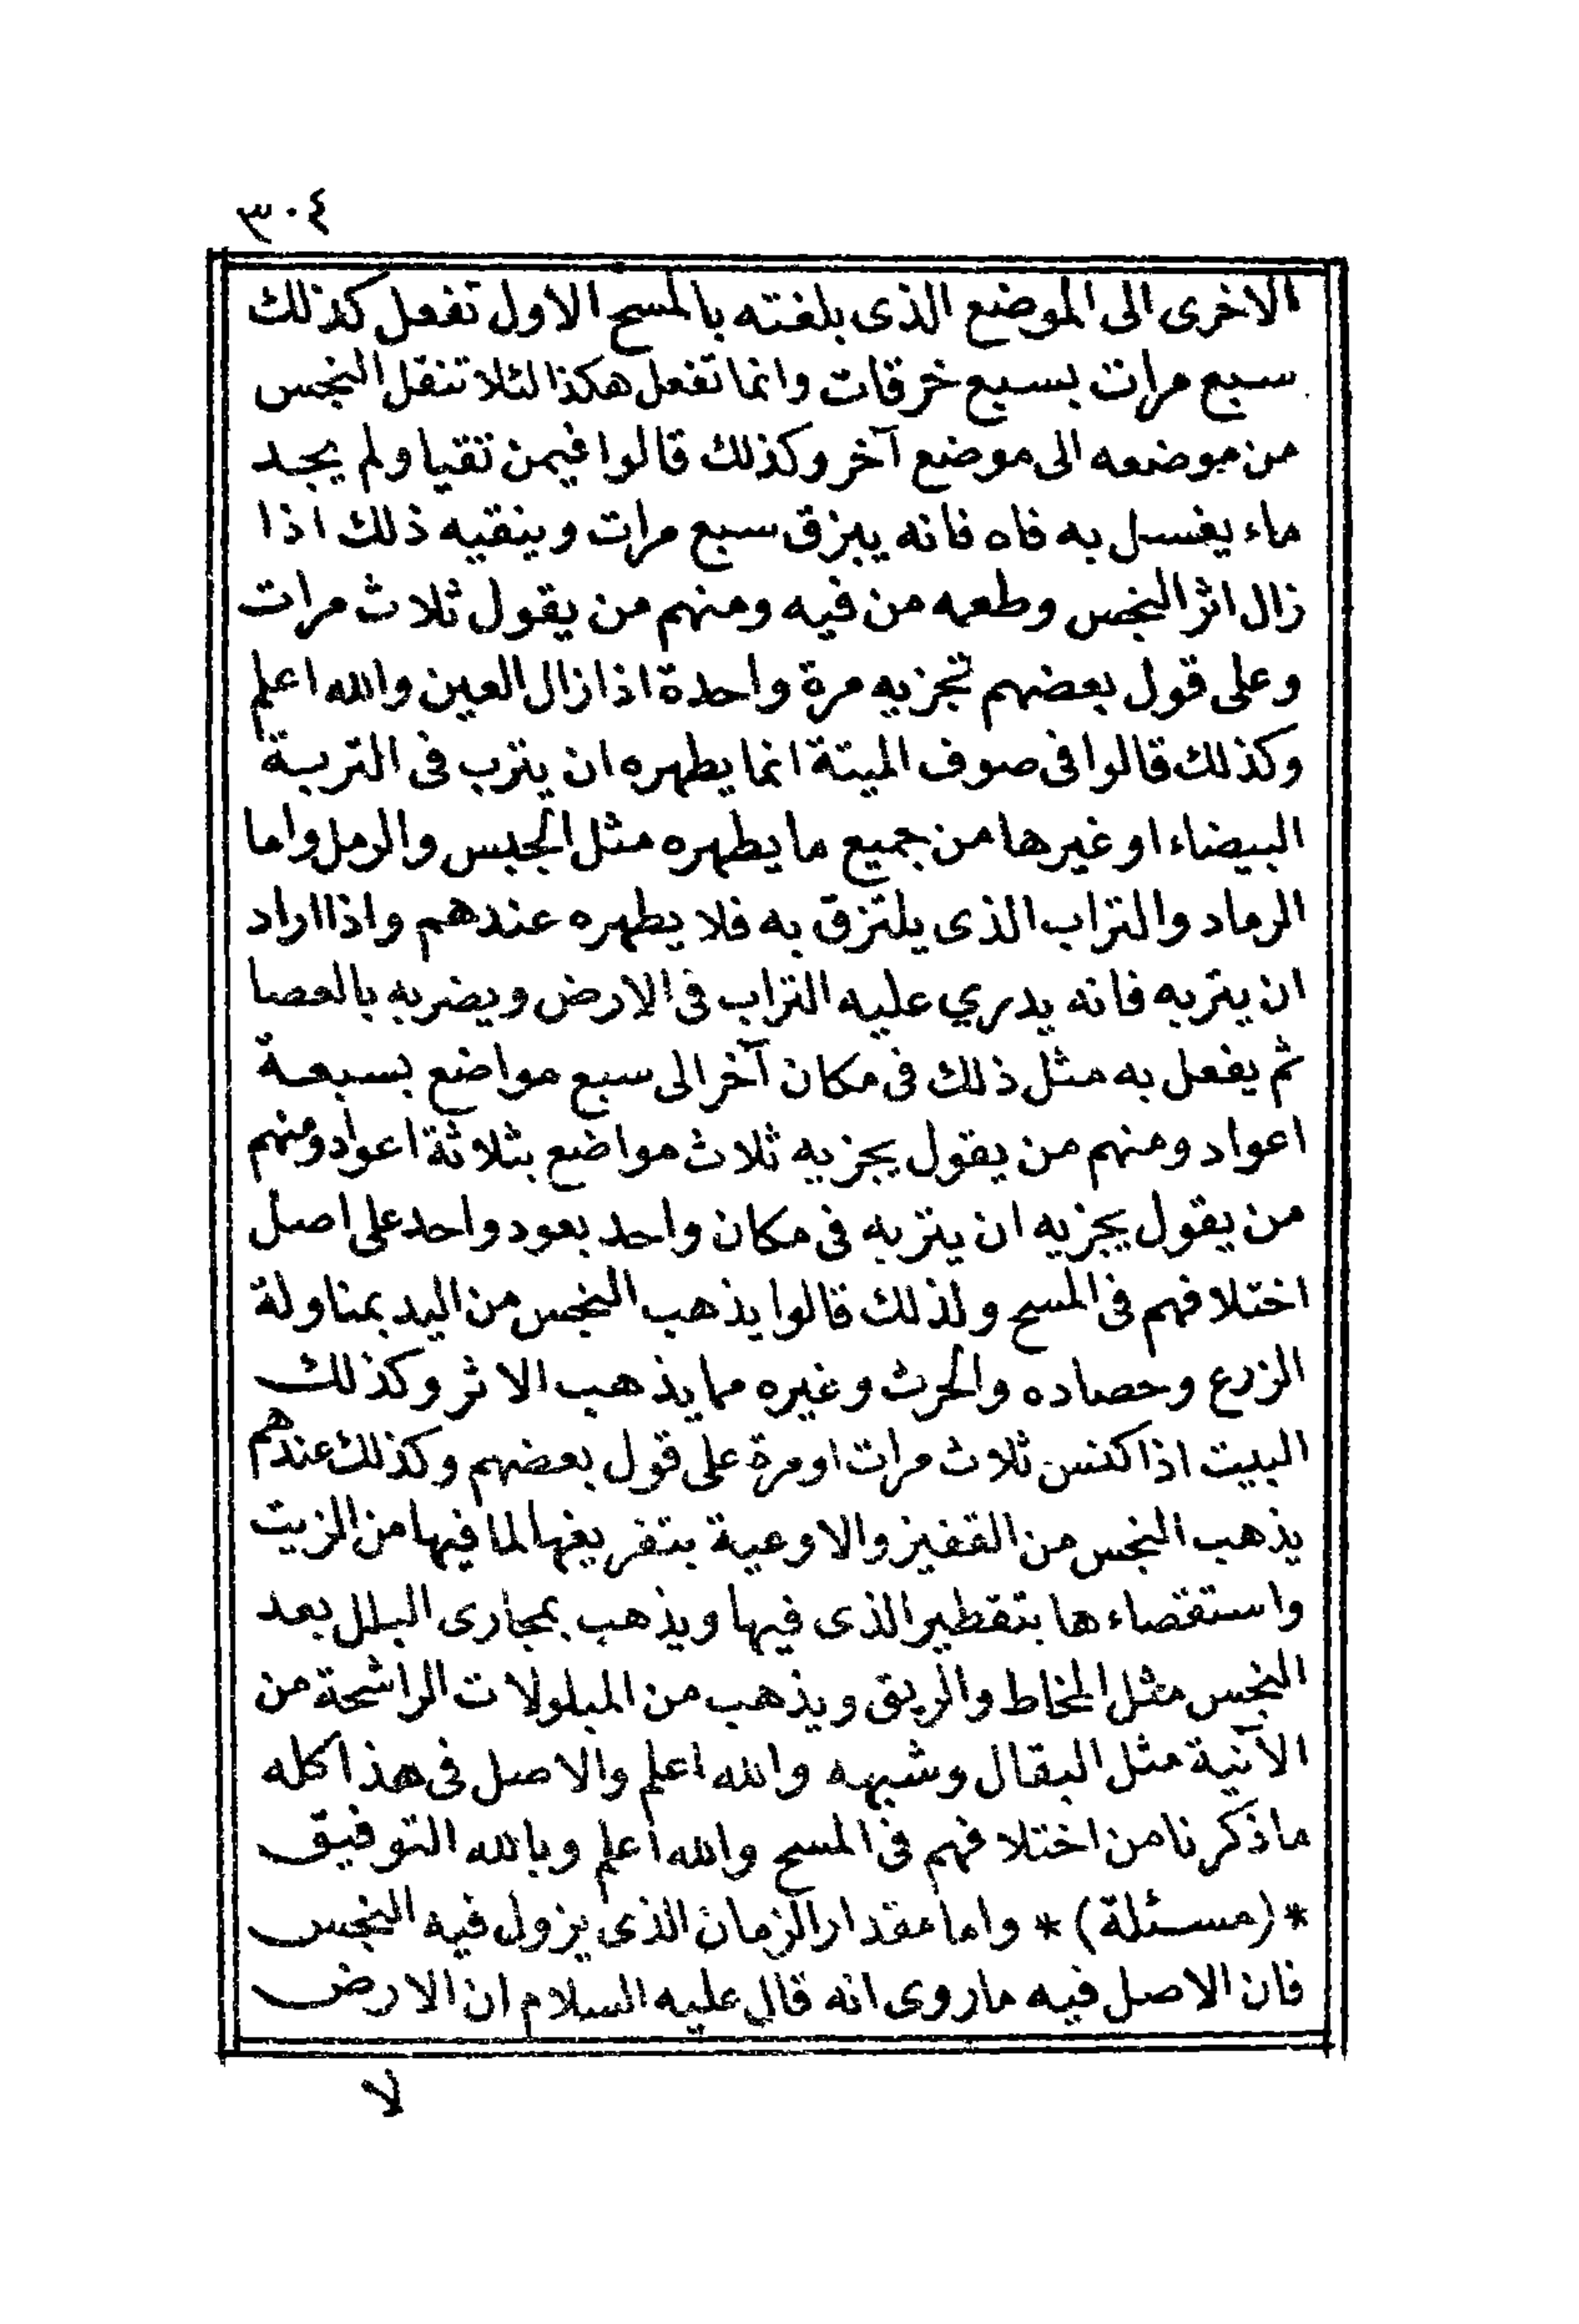 ٣٠٤
الاخرى الى الموضع الذى بلغته بالمسح الاول تفعل كذلك
سبع مرات بسبع خرقات وانما تفعل هكذا لئلا تنقل النجس
من موضعه الى موضع آخر وكذلك قالوا فيمن تقيا ولم يجد
ماء يغسل به فاه فانه يبزق سبع مرات وينقيه ذلك اذا
زال اثر النجس وطعمه من فيه ومنهم من يقول ثلاث مرات
وعلى قول بعضهم تجزيه مرة واحدة اذا زال العين والله اعلم
وكذلك قالوا فى صوف الميتة انما يطهره ان يترب فى التربة
البيضاء او غيرها من جميع ما يطهره مثل الجبس والرمل واما
الرماد والتراب الذى يلتزق به فلا يطهره عندهم واذا اراد
ان يتربه فانه يدري عليه التراب فى الارض ويضربه بالعصا
ثم يفعل به مثل ذلك فى مكان آخر الى سبع مواضع بسبعة
اعواد ومنهم من يقول يجزيه ثلاث مواضع بثلاثة اعواد ومنهم
من يقول يجزيه ان يتربه فى مكان واحد بعود واحد على اصل
اختلافهم فى المسح ولذلك قالوا يذهب النجس من اليد بمناولة
الزرع وحصاده والحرث وغيره مما يذهب الاثر وكذلك
البيت اذا كنس ثلاث مرات او مرة على قول بعضهم وكذلك عندهم
يذهب النجس من القفيز والاوعية بتفريغها لما فيها من الزيت
واستقصاءها بتقطير الذى فيها ويذهب بمجارى البلل بعد
النجس مثل المخاط والريق ويذهب من المبلولات الراشحة من
الآنية مثل البقال وشبهه والله اعلم والاصل فى هذا كله
ما ذكرنا من اختلافهم فى المسح والله اعلم وبالله التوفيق
*(مسئلة)* واما مقدار الزمان الذى يزول فيه النجس
فان الاصل فيه ما روى انه قال عليه السلام ان الارض
لا